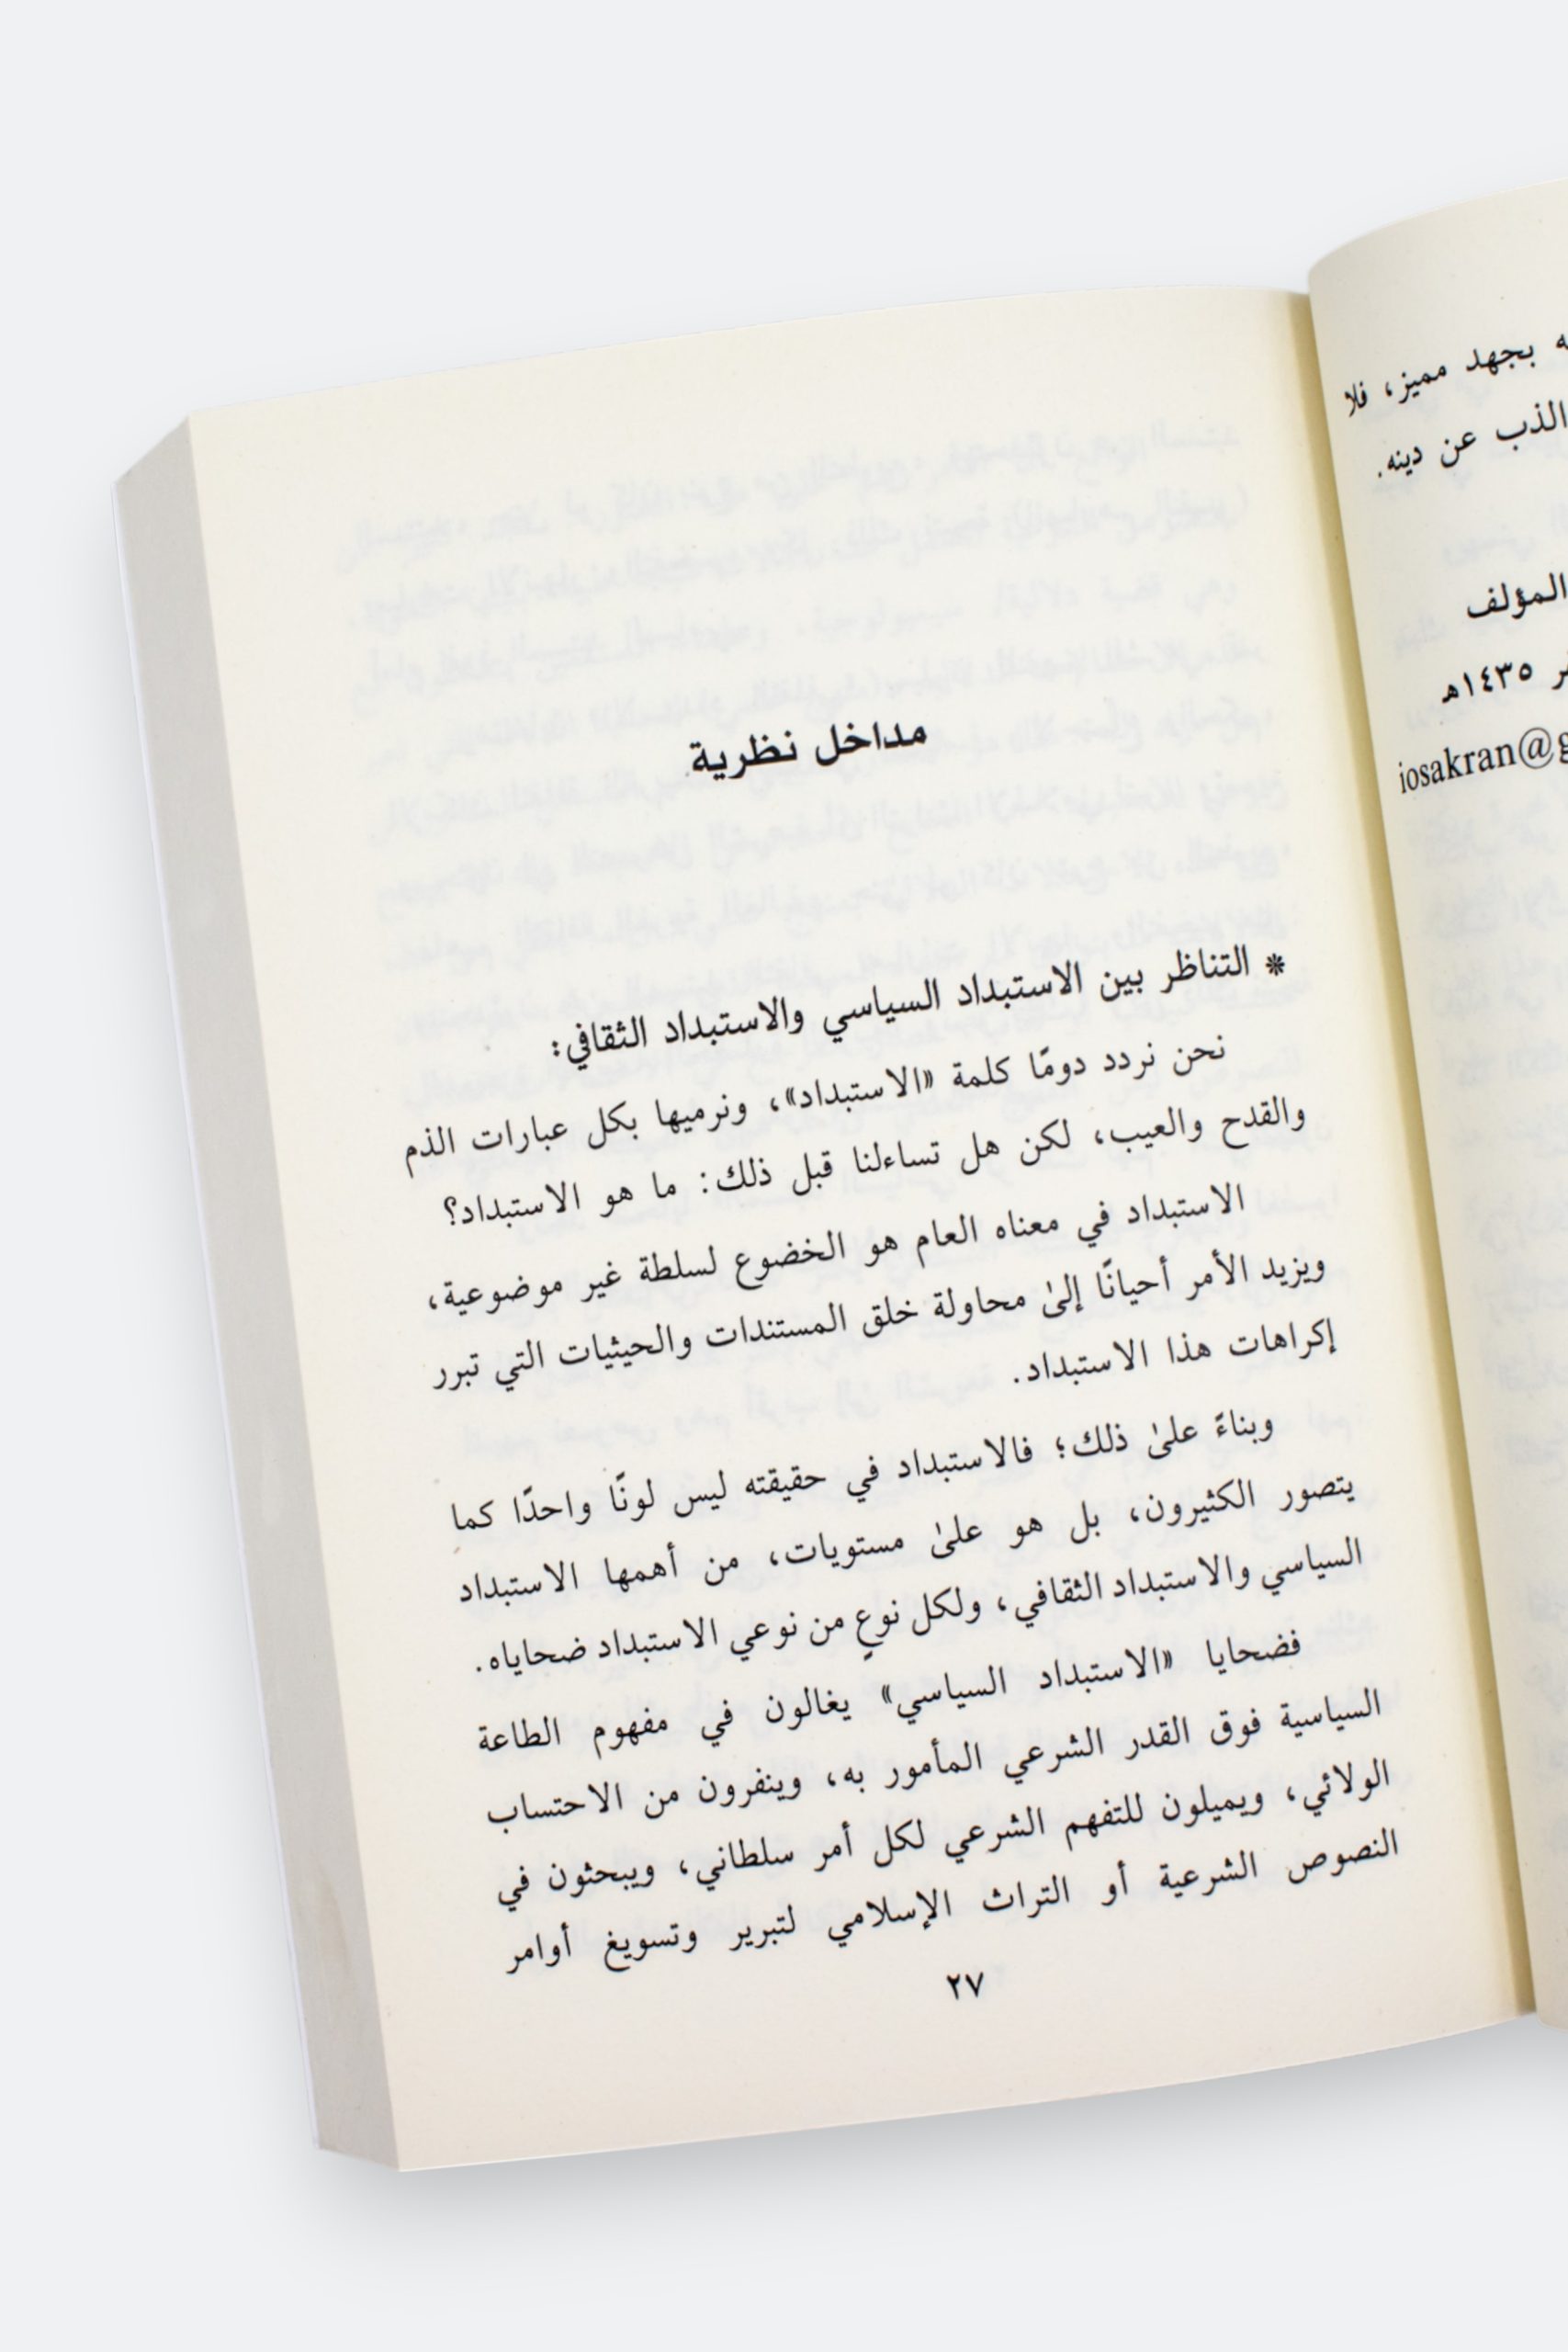 ه بجهد مميز، فلا
الذب عن دينه.
المؤلف
١٤٣٥هـ
iosakran@g
مداخل نظرية
* التناظر بين الاستبداد السياسي والاستبداد الثقافي:
نحن نردد دومًا كلمة «الاستبداد»، ونرميها بكل عبارات الذم
والقدح والعيب، لكن هل تساءلنا قبل ذلك: ما هو الاستبداد؟
الاستبداد في معناه العام هو الخضوع لسلطة غير موضوعية،
ويزيد الأمر أحيانًا إلىٰ محاولة خلق المستندات والحيثيات التي تبرر
إكراهات هذا الاستبداد.
وبناءً علىٰ ذلك؛ فالاستبداد في حقيقته ليس لونًا واحدًا كما
يتصور الكثيرون، بل هو علىٰ مستويات، من أهمها الاستبداد
السياسي والاستبداد الثقافي، ولكل نوعٍ من نوعي الاستبداد ضحاياه.
فضحايا «الاستبداد السياسي» يغالون في مفهوم الطاعة
السياسية فوق القدر الشرعي المأمور به، وينفرون من الاحتساب
الولائي، ويميلون للتفهم الشرعي لكل أمر سلطاني، ويبحثون في
النصوص الشرعية أو التراث الإسلامي لتبرير وتسويغ أوامر
٢٧